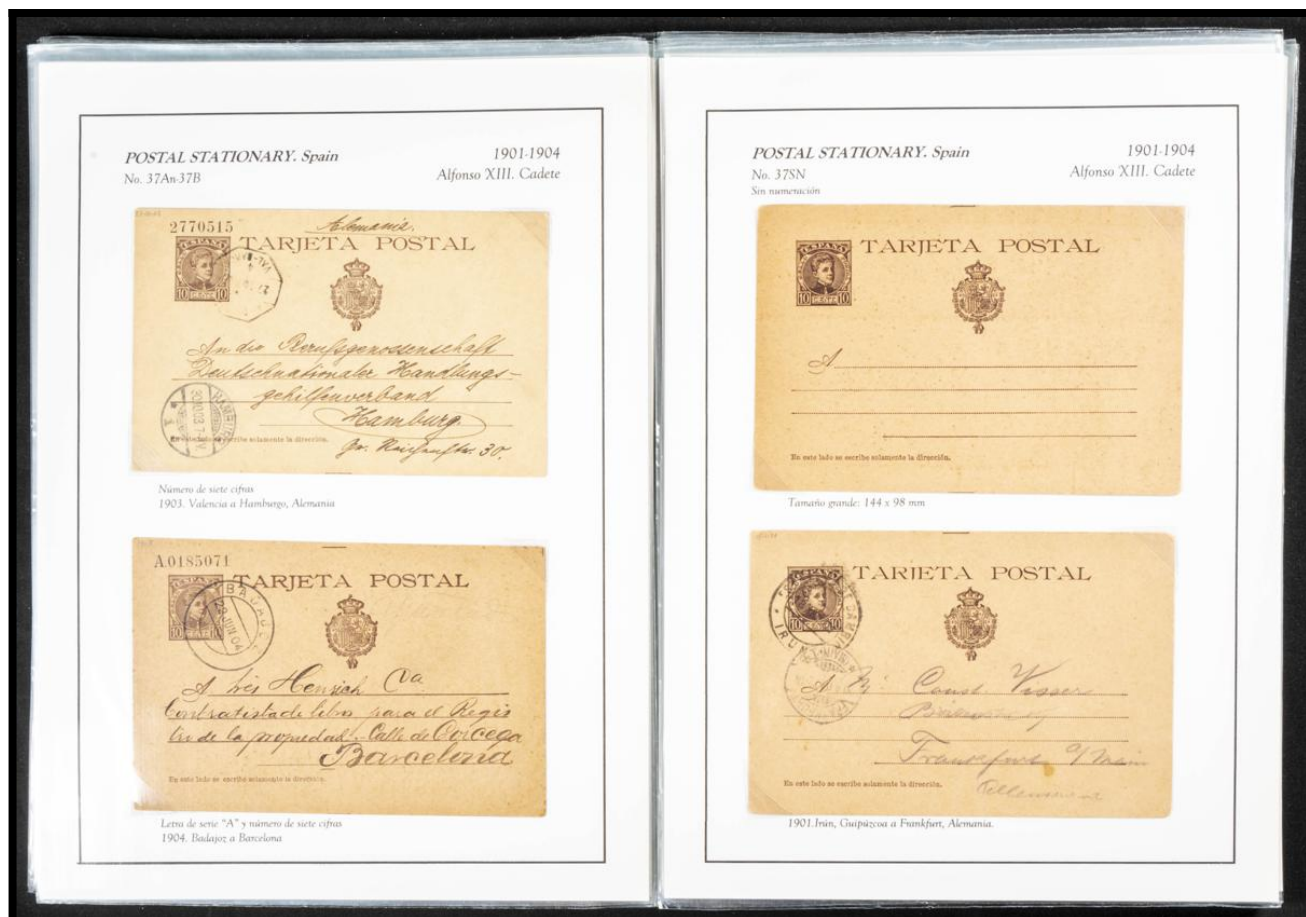 POSTAL STATIONARY. Spain
1901-1904
No. 37An-37B
Alfonso XIII. Cadete
2770515
Alemania.
TARJETA POSTAL
ESPAÑA
10 CENTS 10
An die Berufsgenossenschaft
Deutschnationaler Handlungs-
gehilfenverband
Hamburg
Gr. Reichenstr. 30.
HAMBURG
1
En este lado se escribe solamente la dirección.
Número de siete cifras
1903. Valencia a Hamburgo, Alemania
A.0185071
TARJETA POSTAL
10 10
BADAJOZ
28 JUN 04
A Henrich Cia
Contratista de libros para el Regis
tro de la propiedad - Calle de Corcega
Barcelona
En este lado se escribe solamente la dirección.
Letra de serie "A" y número de siete cifras
1904. Badajoz a Barcelona
POSTAL STATIONARY. Spain
1901-1904
No. 37SN
Alfonso XIII. Cadete
Sin numeración
ESPAÑA
TARJETA POSTAL
10 CENTS 10
A
En este lado se escribe solamente la dirección.
Tamaño grande: 144 x 98 mm
TARJETA POSTAL
10 10
CAMBIO
IRUN
A Const. Visser
Frankfurt a/ Main
En este lado se escribe solamente la dirección.
1901.Irún, Guipúzcoa a Frankfurt, Alemania.